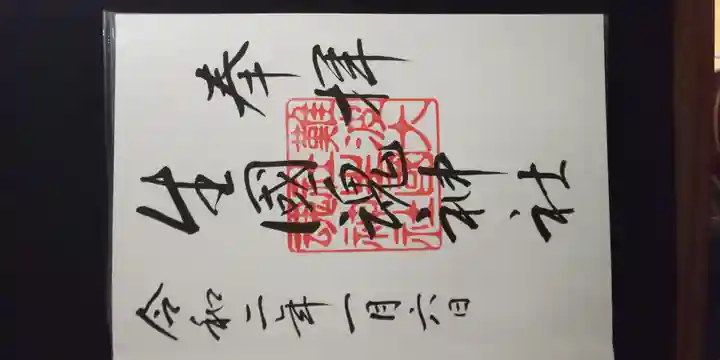 奉拝
生國魂神社
令和二年一月六日